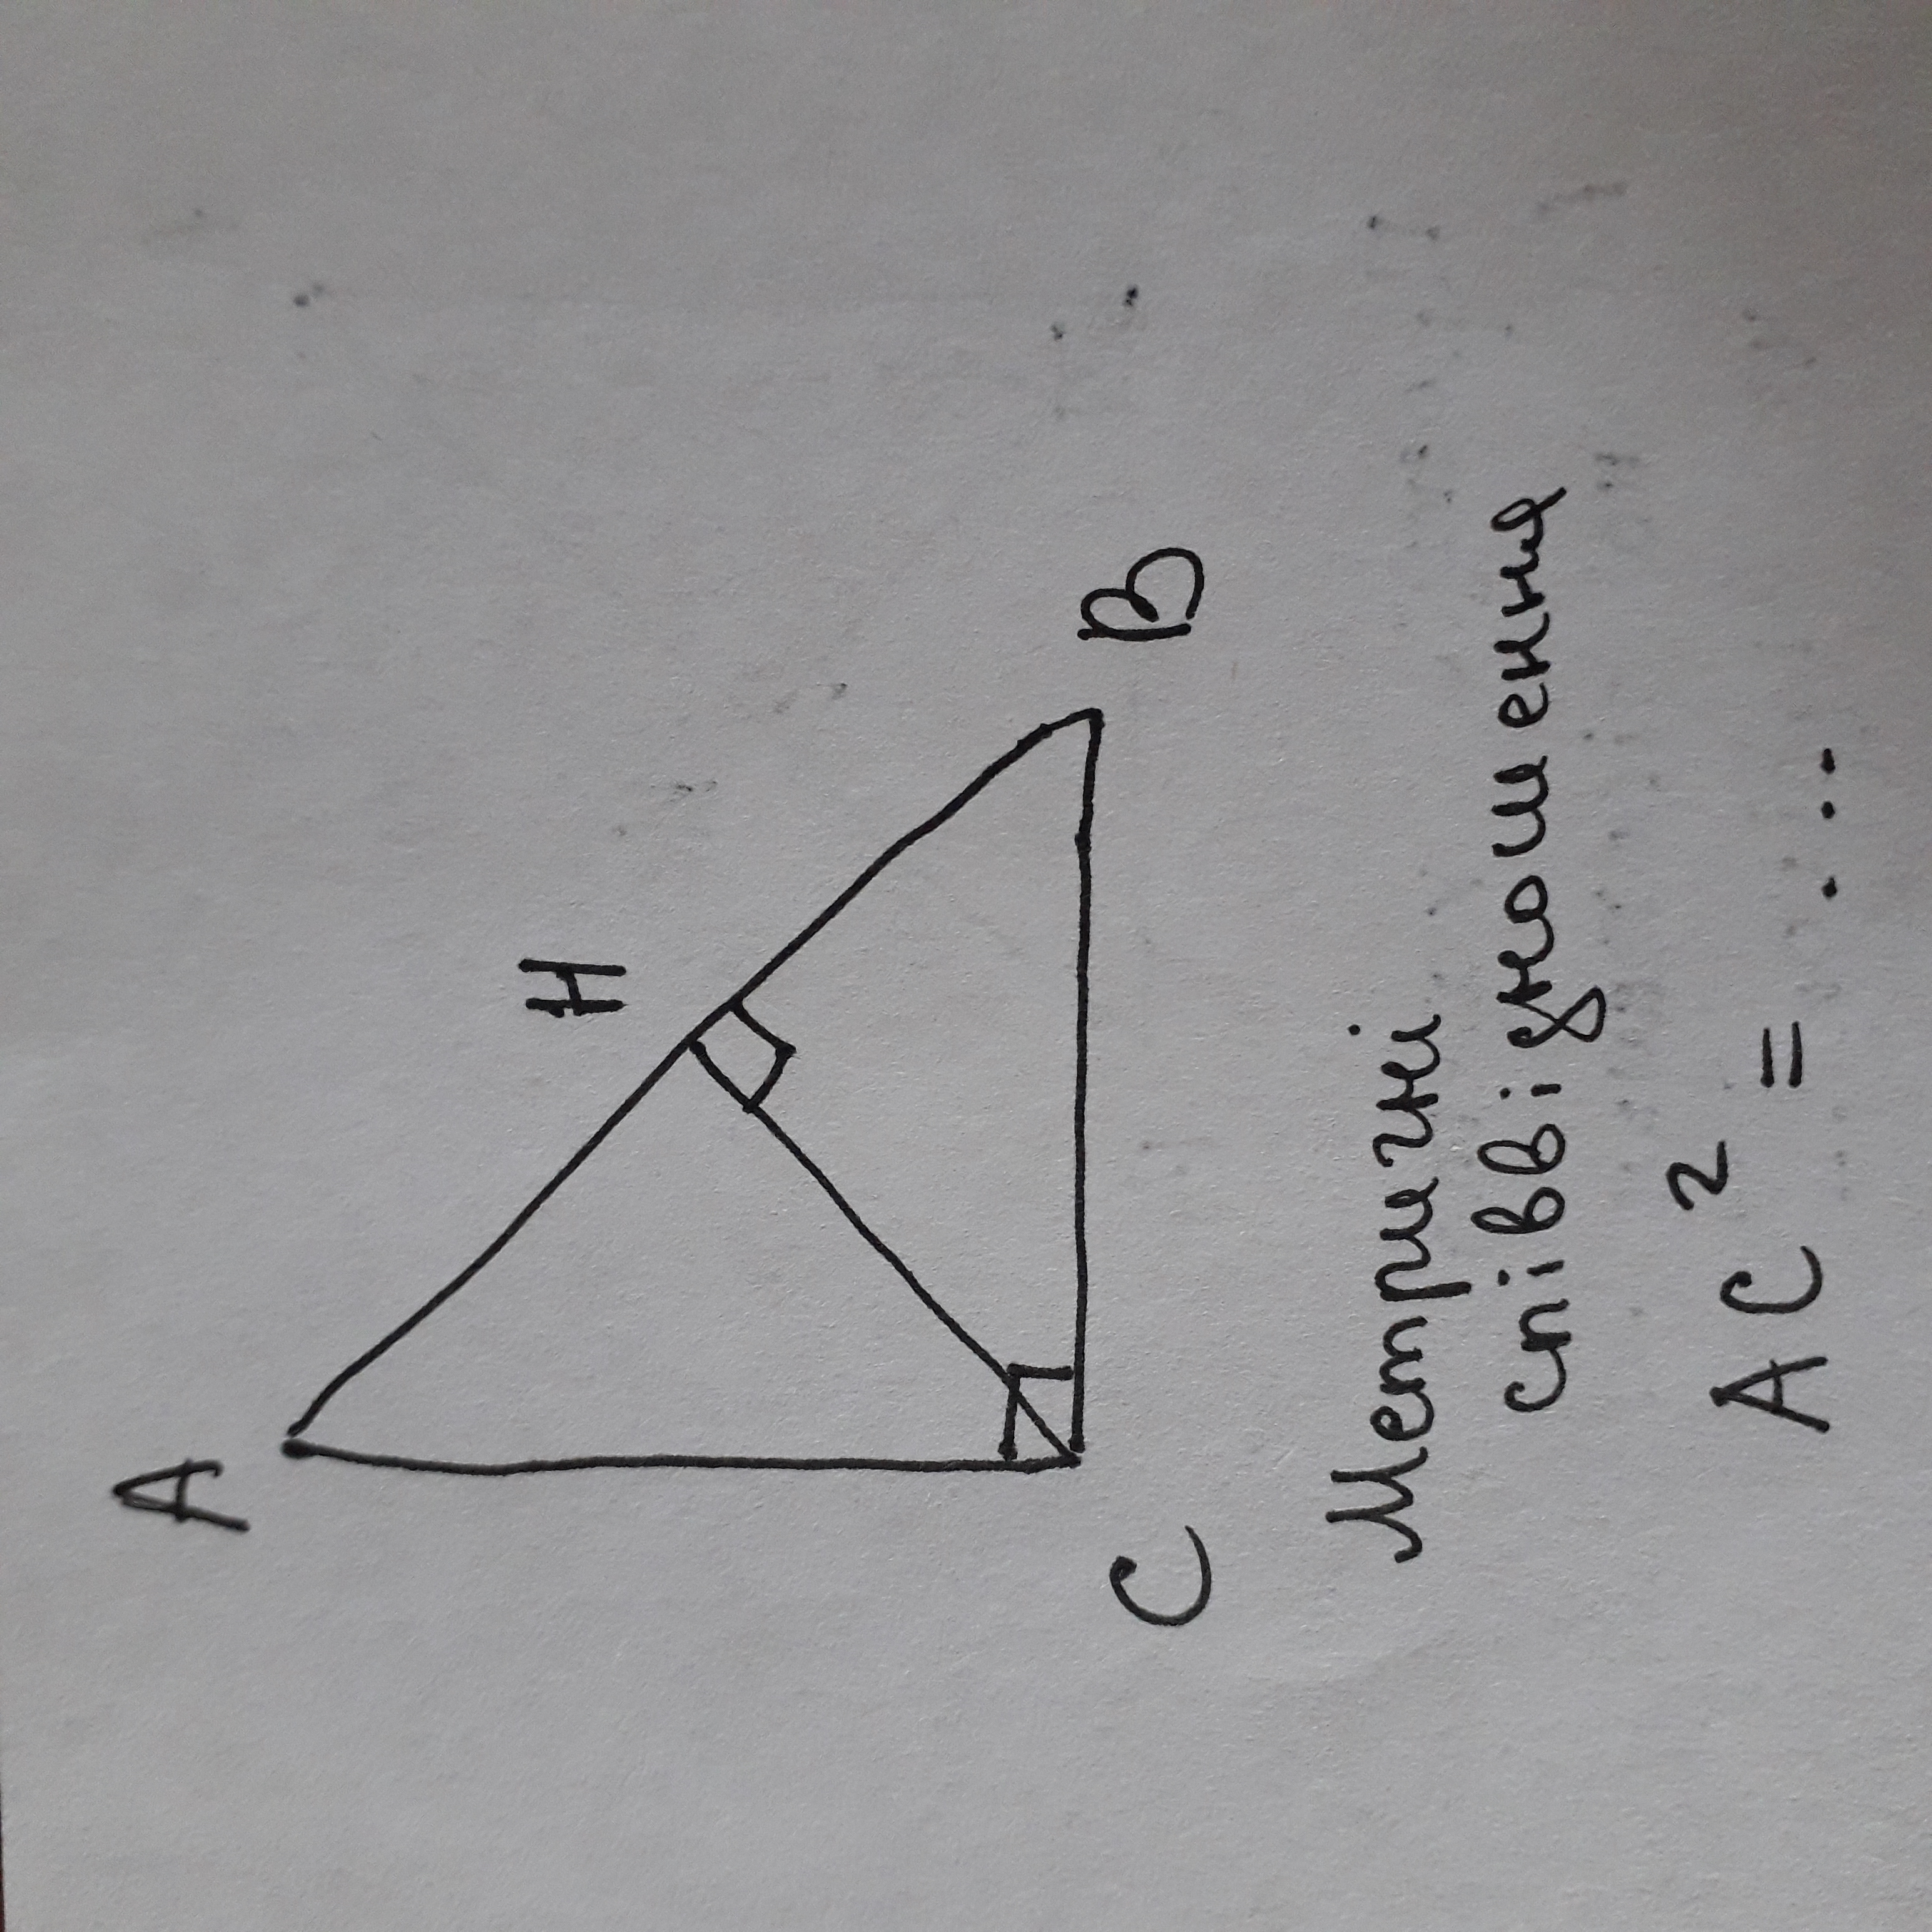 A
H
C
B
Метричні
співвідношення
AC² = ...